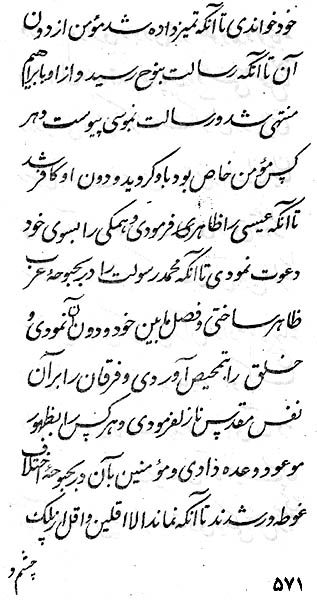 خود خواندی تا آنکه تمیز داده شد مؤمن از دون
آن تا آنکه رسالت بنوح رسید و از او بابراهیم
منتهی شد و رسالت بموسی پیوست و هر
کس مؤمن خاص بود باو کروید و دون او کافر شد
تا آنکه عیسی را ظاهر فرمودی و همکی را بسوی خود
دعوت نمودی تا آنکه محمد رسولت را در بحبوحهٔ عرب
ظاهر ساختی و فصل ما بین خود و دون آن نمودی و
خلق را بتمحیص آوردی و فرقان را بر آن
نفس مقدس نازل فرمودی و هر کس را بظهور
موعود وعده دادی و مؤمنین بآن در بحبوحهٔ اختلاف
غوطه ور شدند تا آنکه نماند الا اقلین و اقل از پلک
چشم و
۵۷۱